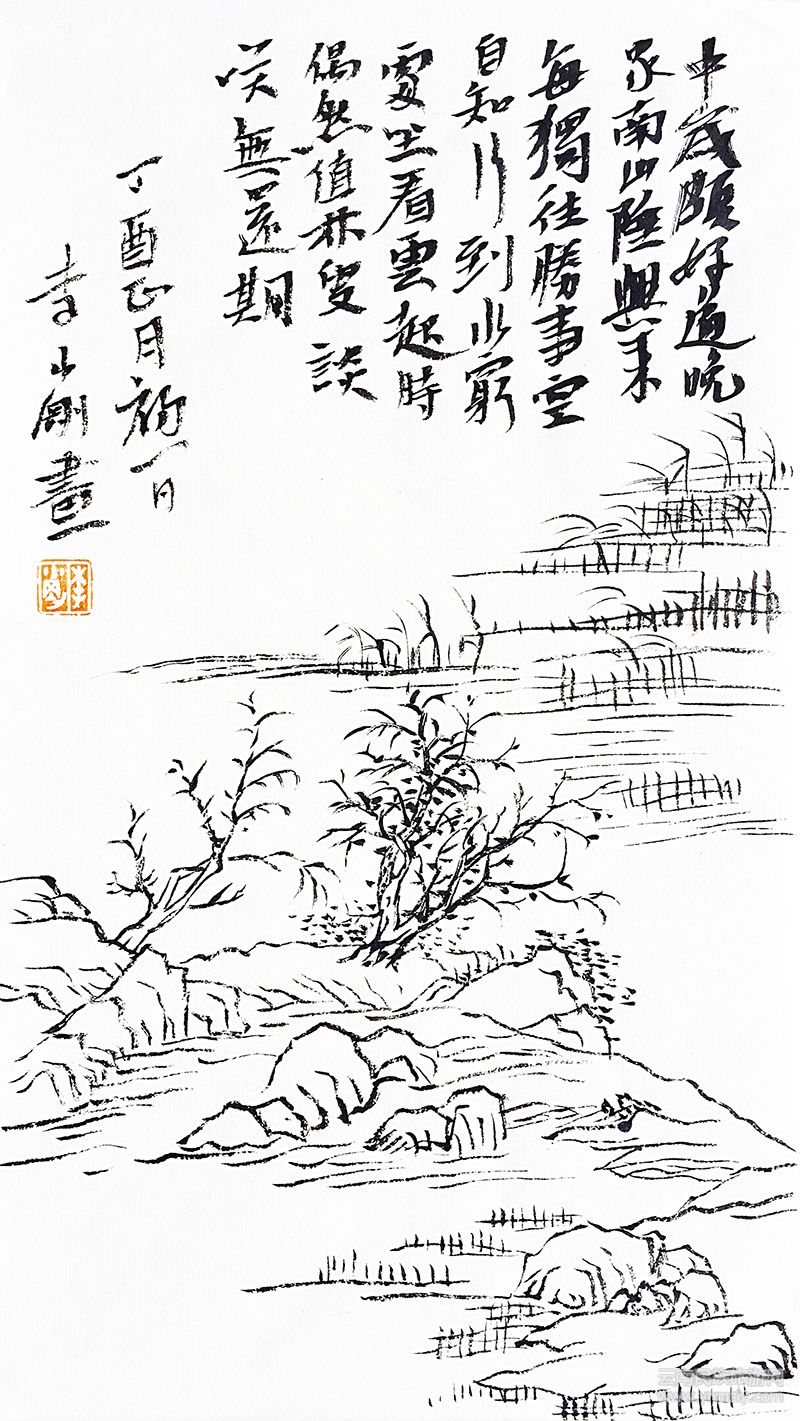 中歲頗好道晚
家南山陲興來
每獨往勝事空
自知行到水窮
處坐看雲起時
偶然值林叟談
笑無還期
丁酉正月初一日
李小剛畫